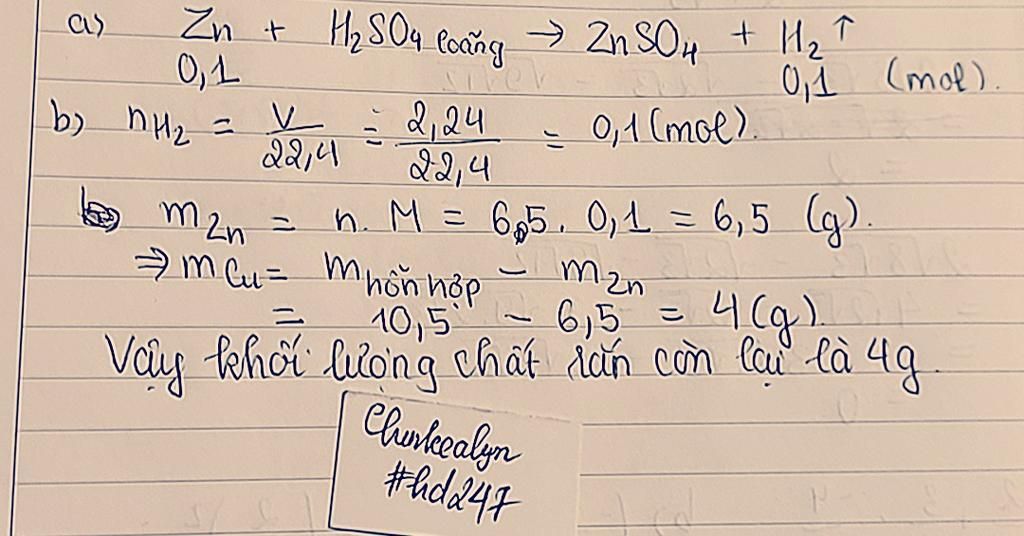 a) Zn + H₂SO₄ loãng → ZnSO₄ + H₂↑
0,1 0,1 (mol).
b) nH₂ = V/22,4 = 2,24/22,4 = 0,1 (mol).
mZn = n. M = 65. 0,1 = 6,5 (g).
⇒ mCu = mhỗn hợp − mZn
= 10,5 − 6,5 = 4 (g).
Vậy khối lượng chất rắn còn lại là 4g.
#hd247